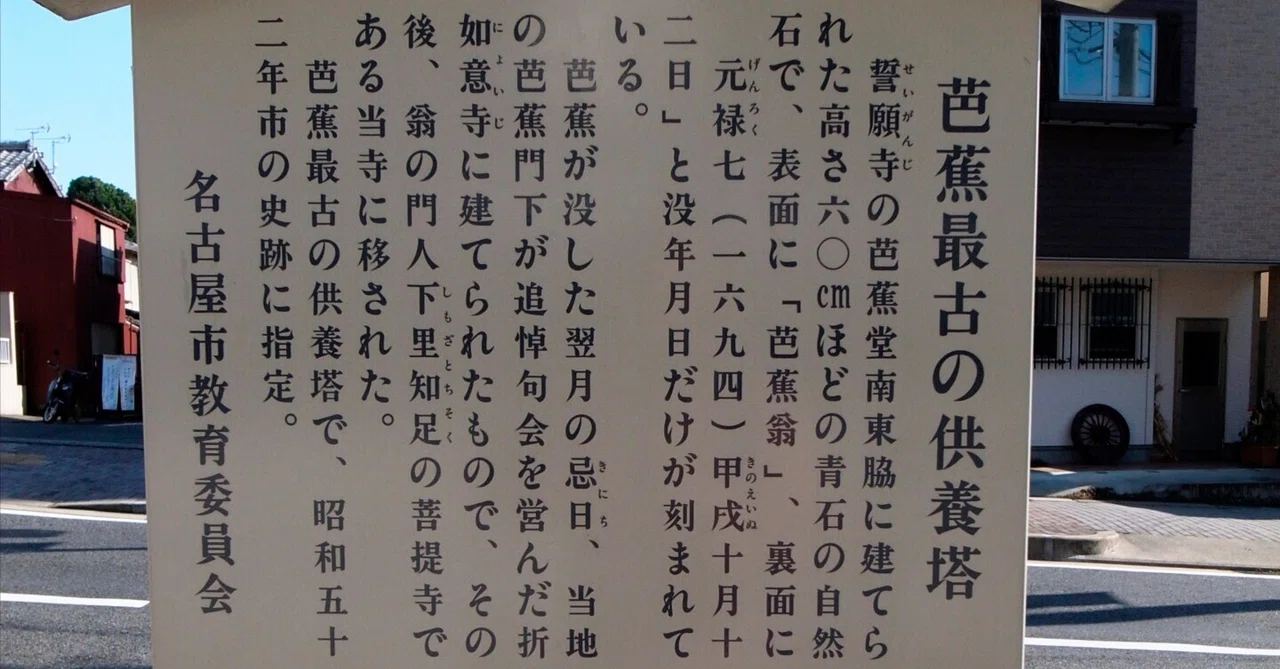 芭蕉最古の供養塔
誓願寺の芭蕉堂南東脇に建てら
れた高さ六〇cmほどの青石の自然
石で、表面に「芭蕉翁」、裏面に
元禄七（一六九四）甲戌十月十
二日」と没年月日だけが刻まれて
いる。
芭蕉が没した翌月の忌日、当地
の芭蕉門下が追悼句会を営んだ折
如意寺に建てられたもので、その
後、翁の門人下里知足の菩提寺で
ある当寺に移された。
芭蕉最古の供養塔で、昭和五十
二年市の史跡に指定。
名古屋市教育委員会